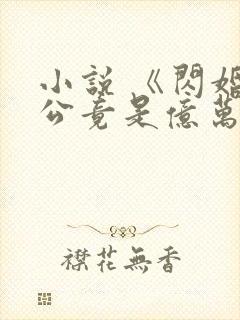 小說《閃婚
公竟是億萬
襟花無香